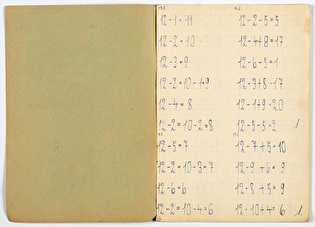 12-1=11
12-2=10
12-3=9
12-2=10-1=9
12-4=8
12-2=10-2=8
12-5=7
12-2=10-3=7
12-6=6
12-2=10-4=6
12-2-5=5
12-4+9=17
12-6-5=1
12-3+8=17
12-1+9=20
12-5-5=2
1
12-7+5=10
12-9+6=9
12-8+5=9
12-10+4=6
1.